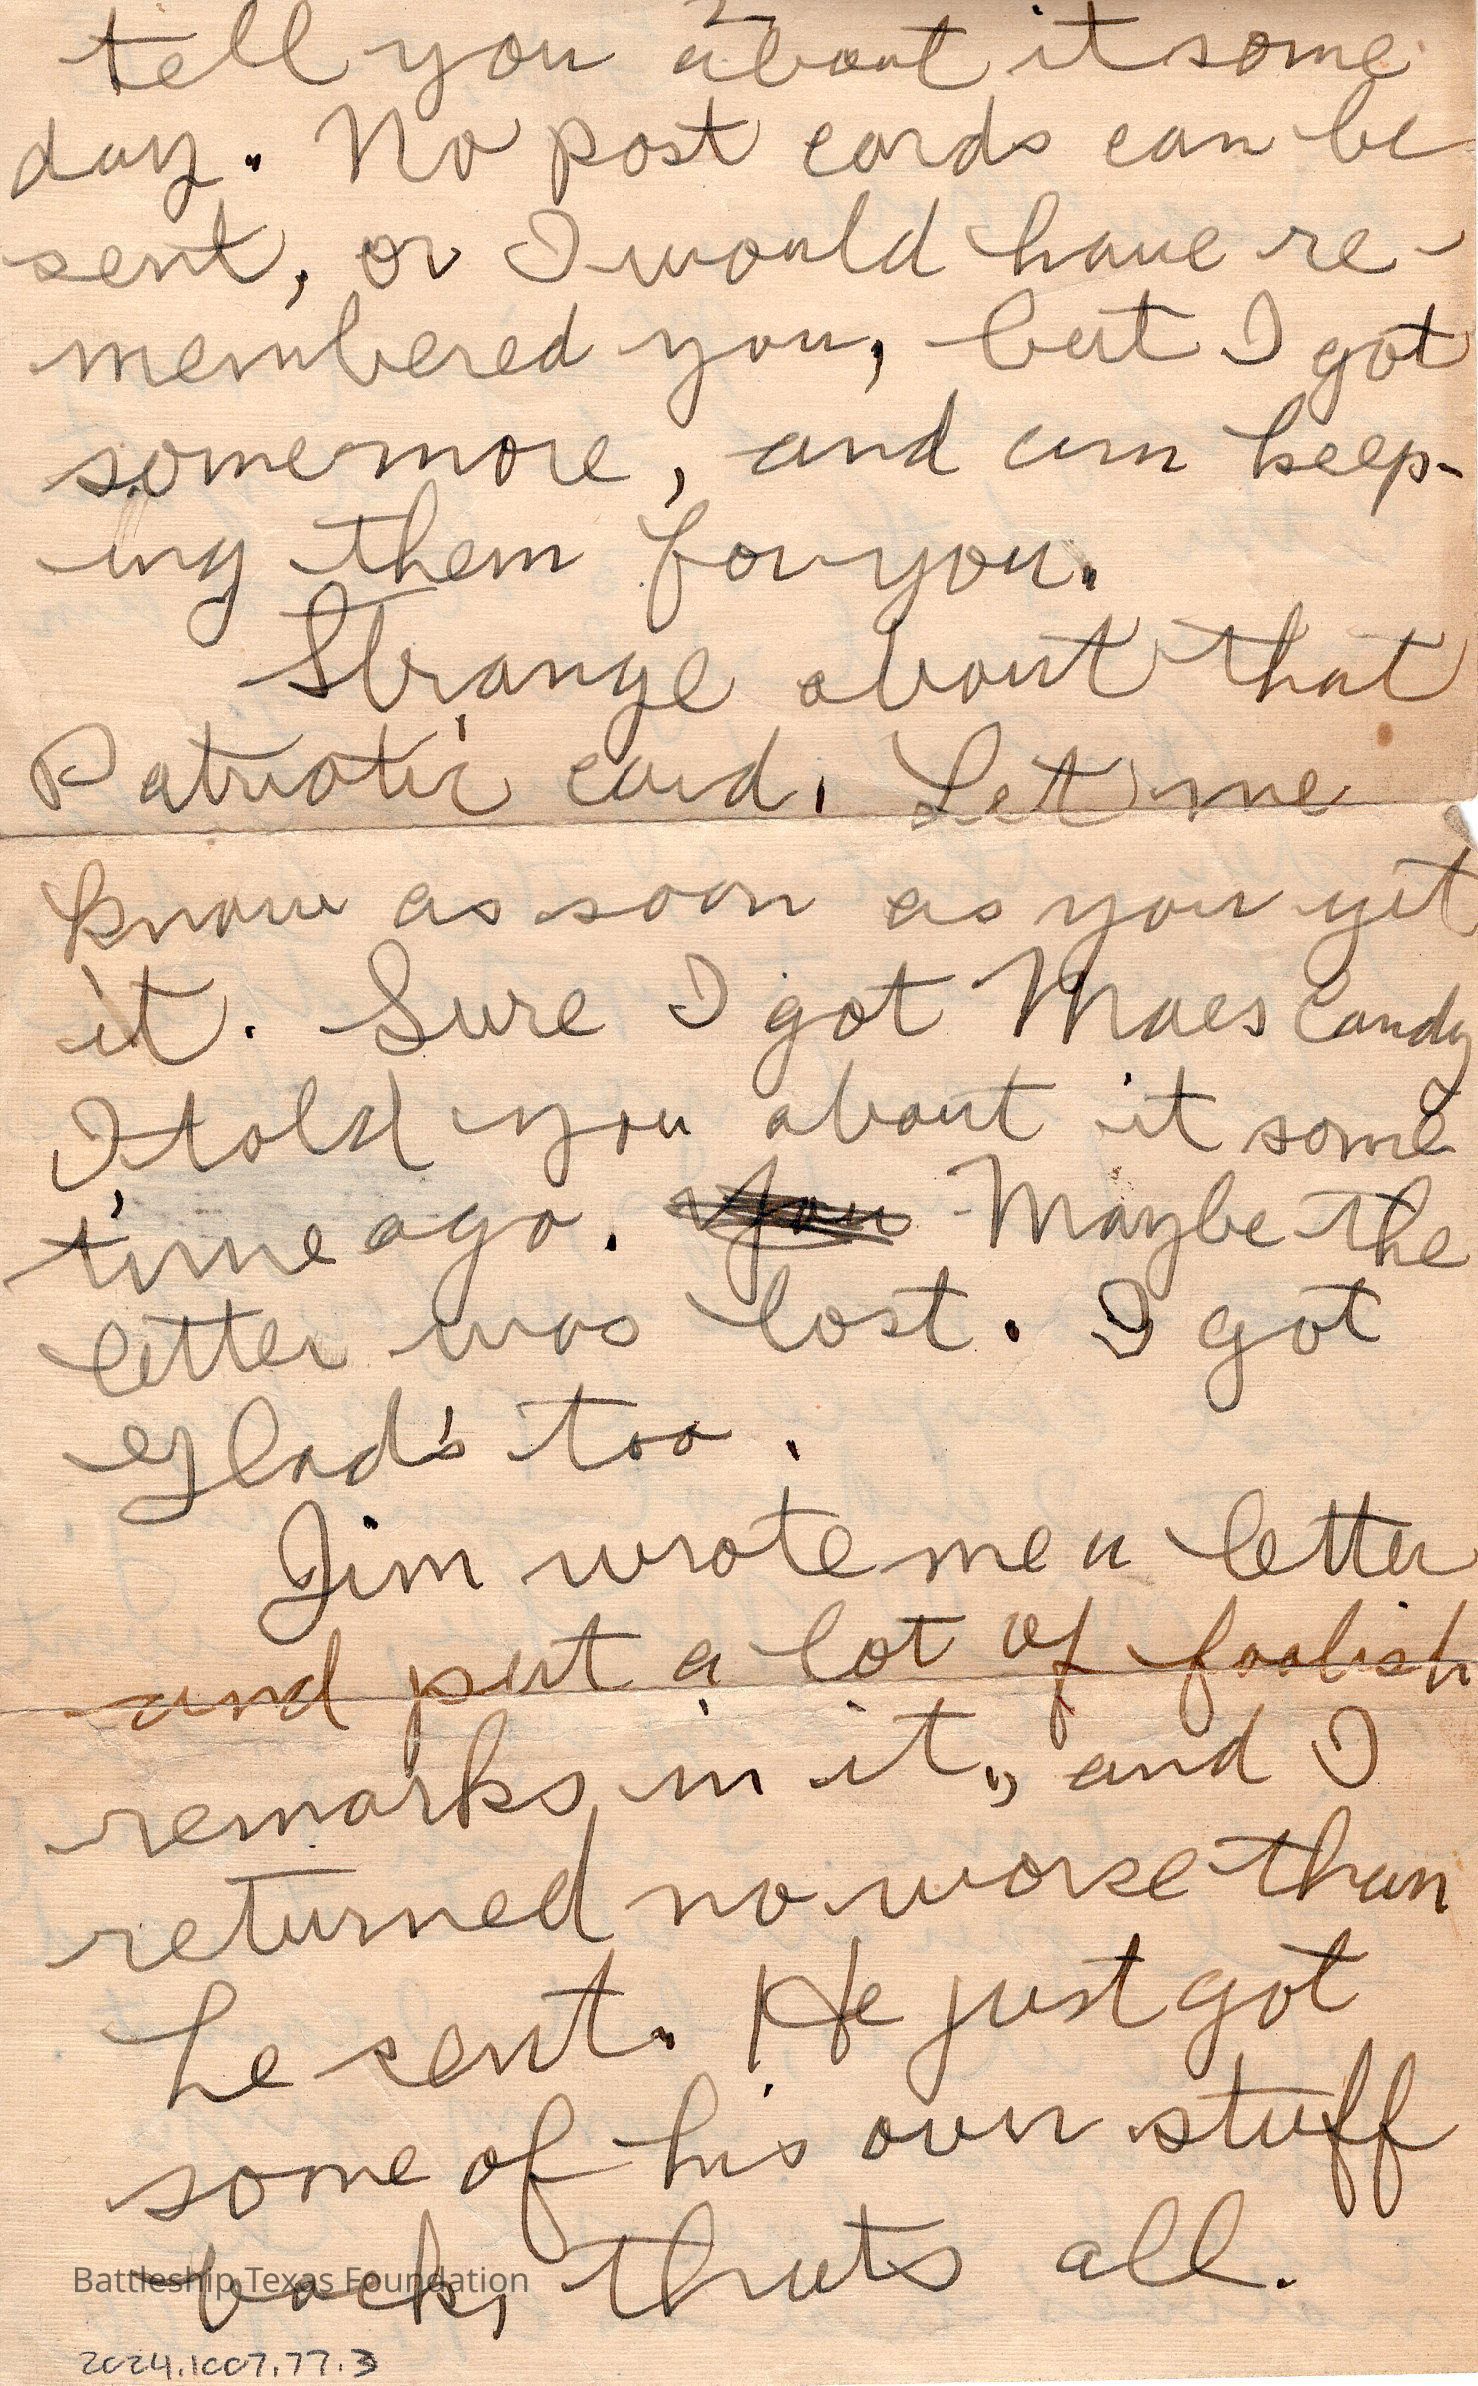 2
tell you about it some
day. No post cards can be
sent, or I would have re-
membered you, but I got
some more, and am keep-
ing them for you.
Strange about that
Patriotic card. Let me
know as soon as you get
it. Sure I got Maes candy
I told you about it some
time ago. You Maybe the
letter was lost. I got
Glad's too.
Jim wrote me a letter
and put a lot of foolish
remarks in it, and I
returned no worse than
he sent. He just got
some of his own stuff
back, thats all.
Battleship Texas Foundation
2024.1007.77.3